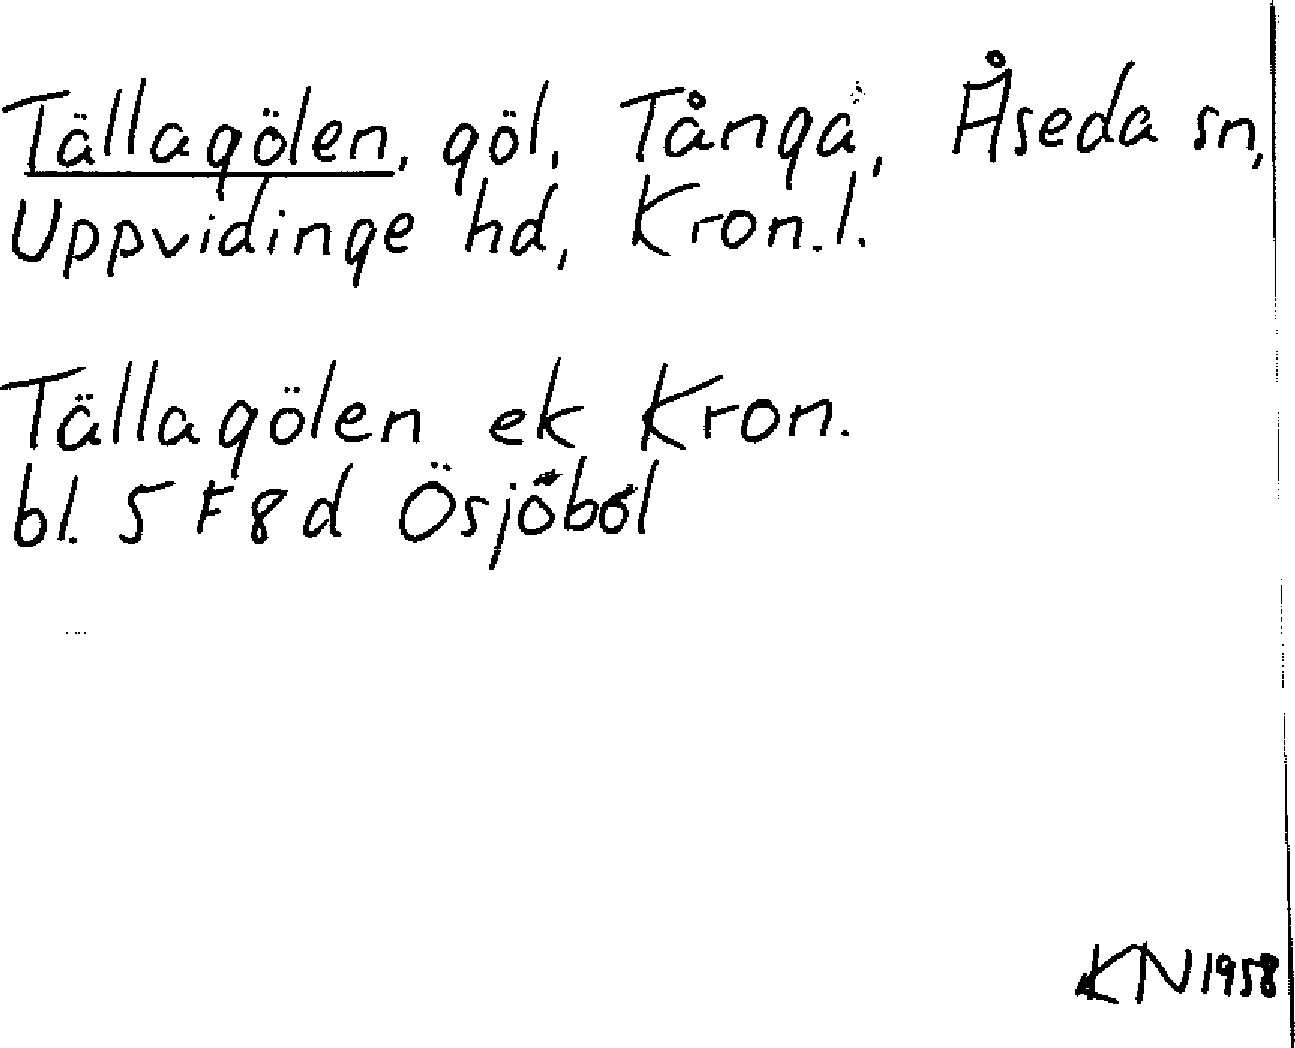 Tällagölen, göl, Tånga, Åseda sn,
Uppvidinge hd, Kron.l.
Tällagölen ek Kron.
bl. 5 F 8 d Ösjöbol
KN 1958